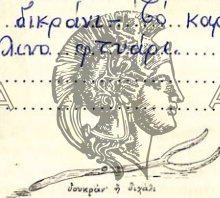 δικράνι – τὸ καρ
λινο φτυάρι
δουκράν' ἢ διχάλι